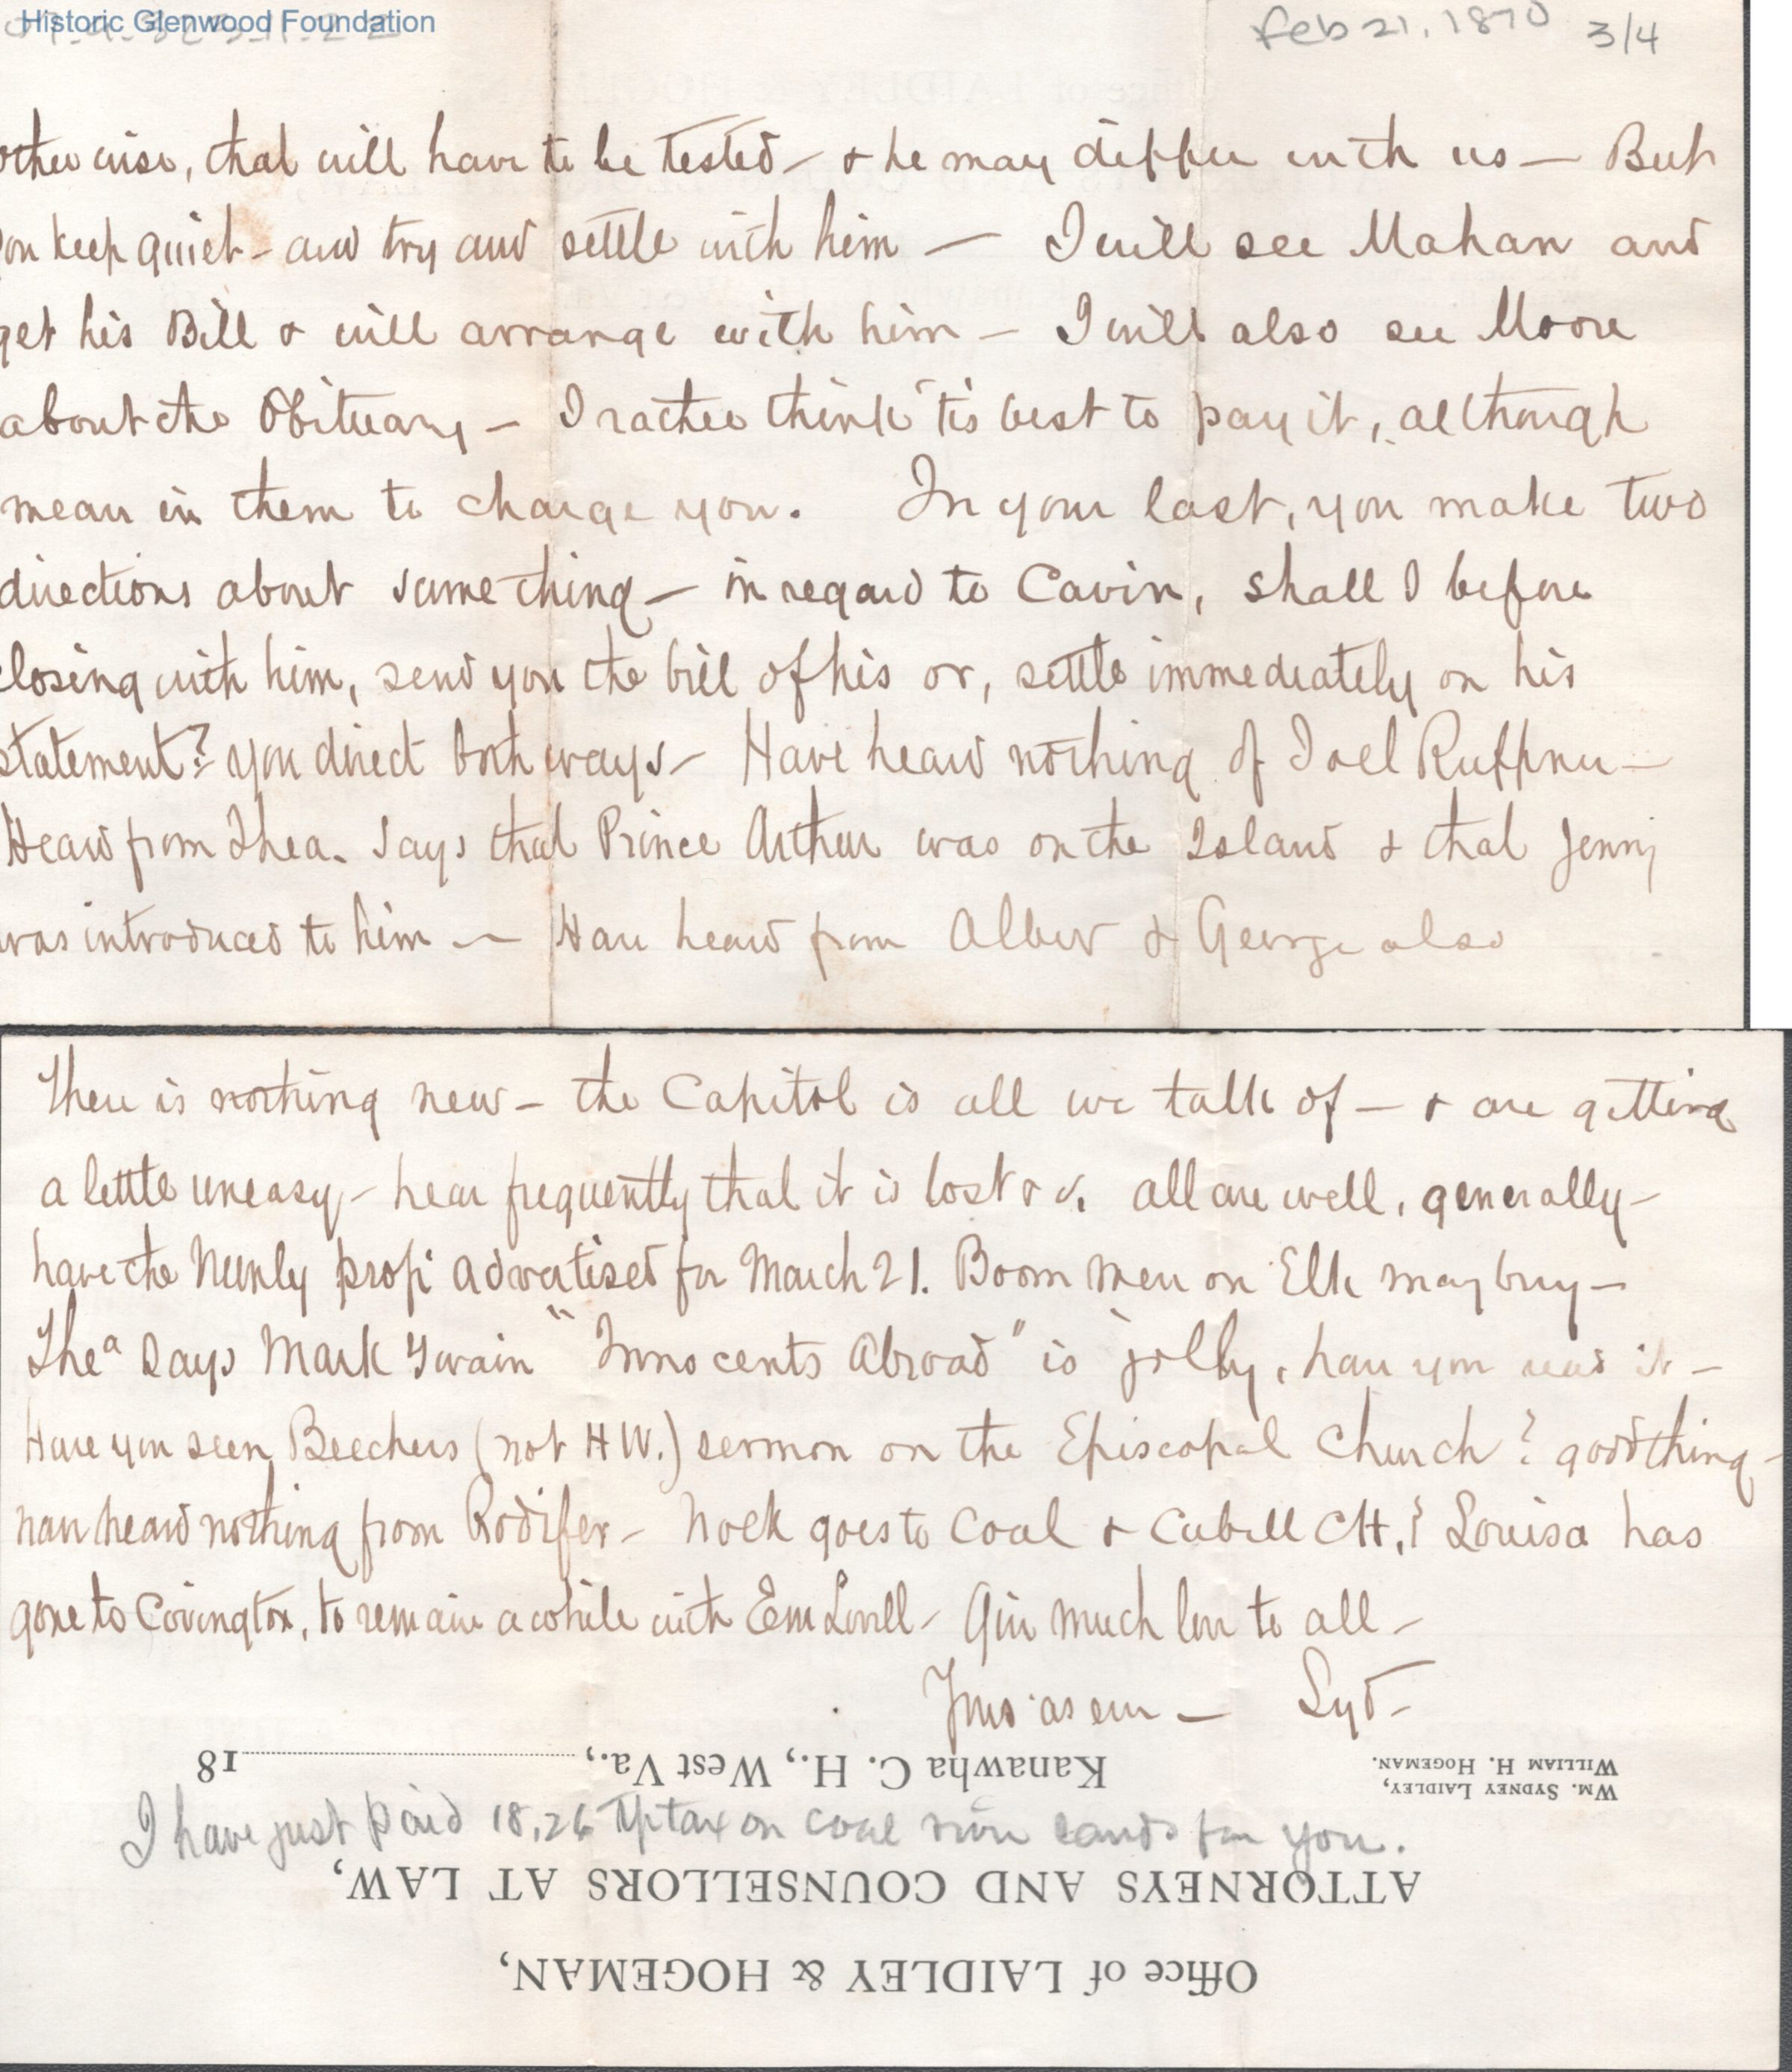 Historic Glenwood Foundation
Feb 21, 1870 3/4
otherwise, that will have to be tested - & he may differ with us - But
you keep quiet - and try and settle with him - I will see Mahan and
get his Bill & will arrange with him - I will also see Moore
about the Obituary - I rather think 'tis best to pay it, although
mean in them to charge you. In your last, you make two
directions about same thing - in regard to Cavin, shall I before
closing with him, send you the bill of his or, settle immediately on his
statement? you direct both ways - Have heard nothing of Joel Ruffner -
Heard from Thea. Says that Prince Arthur was on the Island & that Jenny
was introduced to him - Have heard from Albert & George also
There is nothing new - the Capitol is all we talk of - & are getting
a little uneasy - hear frequently that it is lost &c. all are well, generally -
have the prop. advertised for March 21. Boom men on Elk may buy -
Thea Says Mark Twain "Innocents Abroad" is jolly, have you read it -
Have you seen Beechers (not H W.) sermon on the Episcopal Church? good thing -
have heard nothing from Rodifer - goes to Coal & Cabell CH. Louisa has
gone to Covington, to remain awhile with Em Lovell - Give much love to all -
Yours as ever - Syd -
Wm. Sydney Laidley,
William H. Hogeman.
Kanawha C. H., West Va., 18
I have just paid 18.26 tax on coal river lands for you.
ATTORNEYS AND COUNSELLORS AT LAW,
Office of LAIDLEY & HOGEMAN,